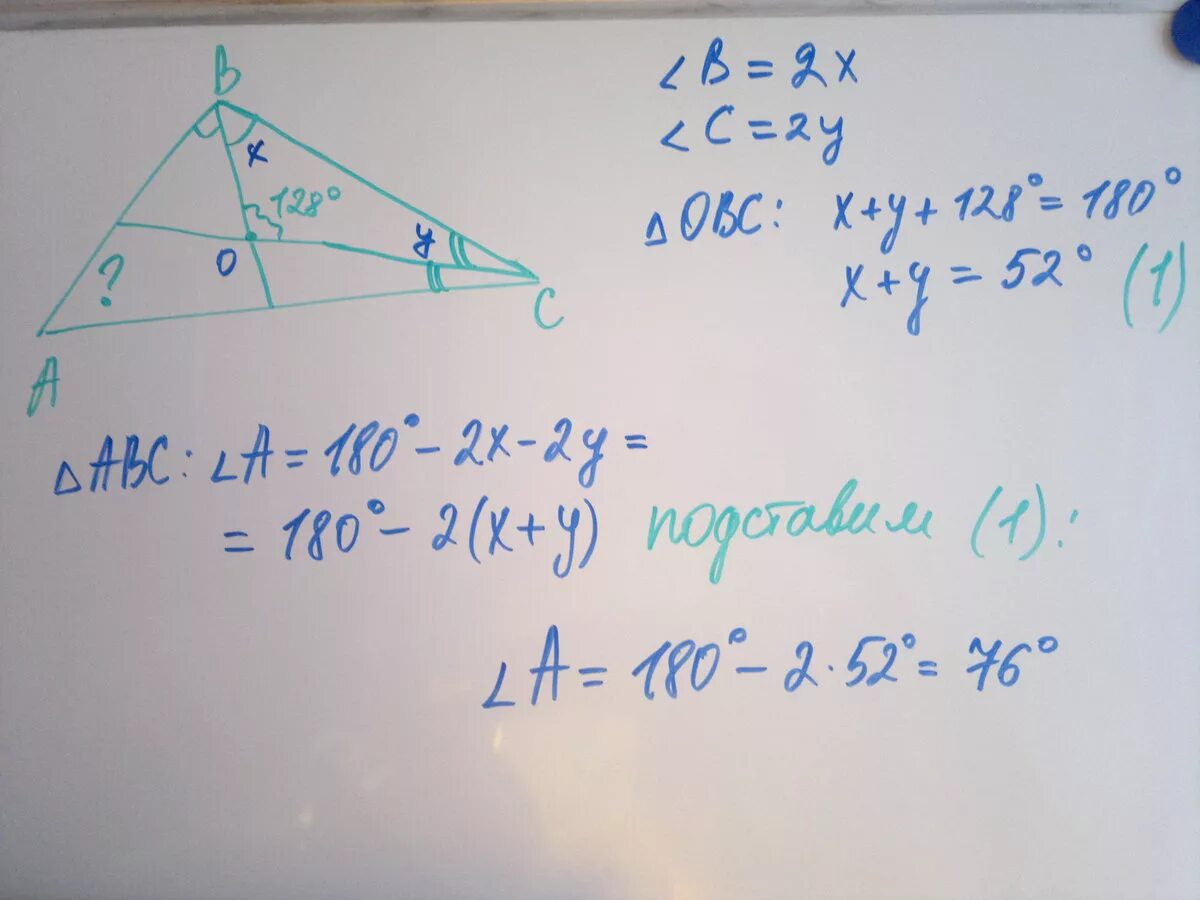 B
x
128°
y
O
?
C
A
∠B = 2x
∠C = 2y
△OBC: x+y+128° = 180°
x+y = 52° (1)
△ABC: ∠A = 180° - 2x - 2y =
= 180° - 2(x+y) подставим (1):
∠A = 180° - 2·52° = 76°